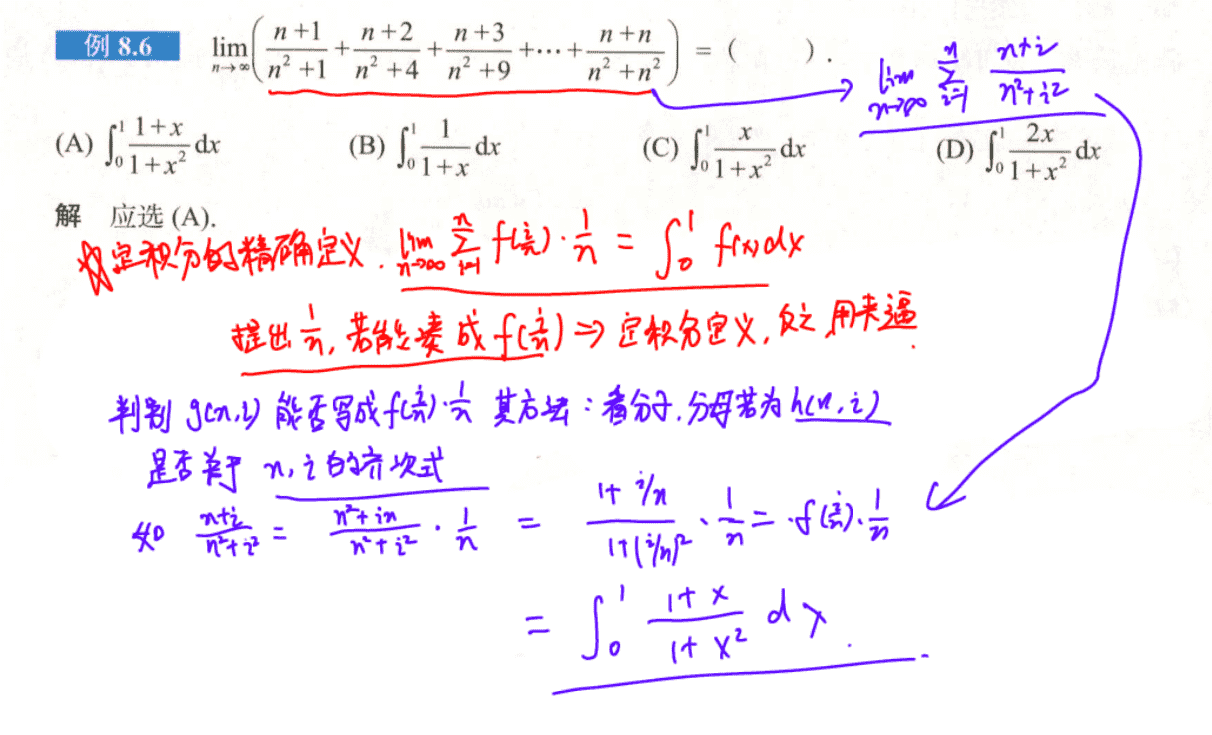 例 8.6 lim_{n→∞} ( (n+1)/(n²+1) + (n+2)/(n²+4) + (n+3)/(n²+9) + ⋯ + (n+n)/(n²+n²) ) = (  ).
lim_{n→∞} Σ_{i=1}^{n} (n+i)/(n²+i²)
(A) ∫₀¹ (1+x)/(1+x²) dx (B) ∫₀¹ 1/(1+x) dx (C) ∫₀¹ x/(1+x²) dx (D) ∫₀¹ 2x/(1+x²) dx
解 应选 (A).
☆定积分的精确定义. lim_{n→∞} Σ_{i=1}^{n} f(i/n)·1/n = ∫₀¹ f(x)dx
提出 1/n, 若能凑成 f(i/n) ⇒ 定积分定义, 反之, 用夹逼.
判别 g(n,i) 能否写成 f(i/n)·1/n 其方法: 看分子, 分母若为 h(n,i)
是否关于 n, i 的齐次式
如 (n+i)/(n²+i²) = (n²+in)/(n²+i²) · 1/n = (1+i/n)/(1+(i/n)²) · 1/n = ·f(i/n)·1/n
= ∫₀¹ (1+x)/(1+x²) dx.